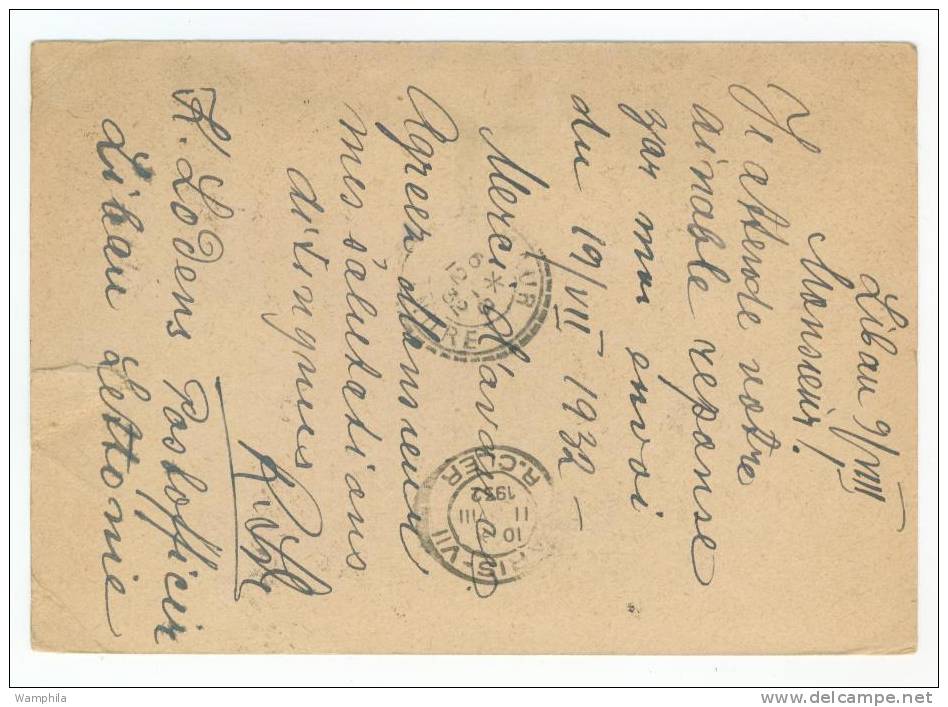 Libau 9/VIII
Monsieur!
Je attende votre
aimable reponse
par moi envoi
du 19/VII 1932 -
Merci d'avance
Agreer Monsieur
mes salutations
ditingnues
K. Lodens Postofficir
Libau Lettonie
PARIS-VII
10
VIII
1932
R. CLER
Wamphila
www.delcampe.net